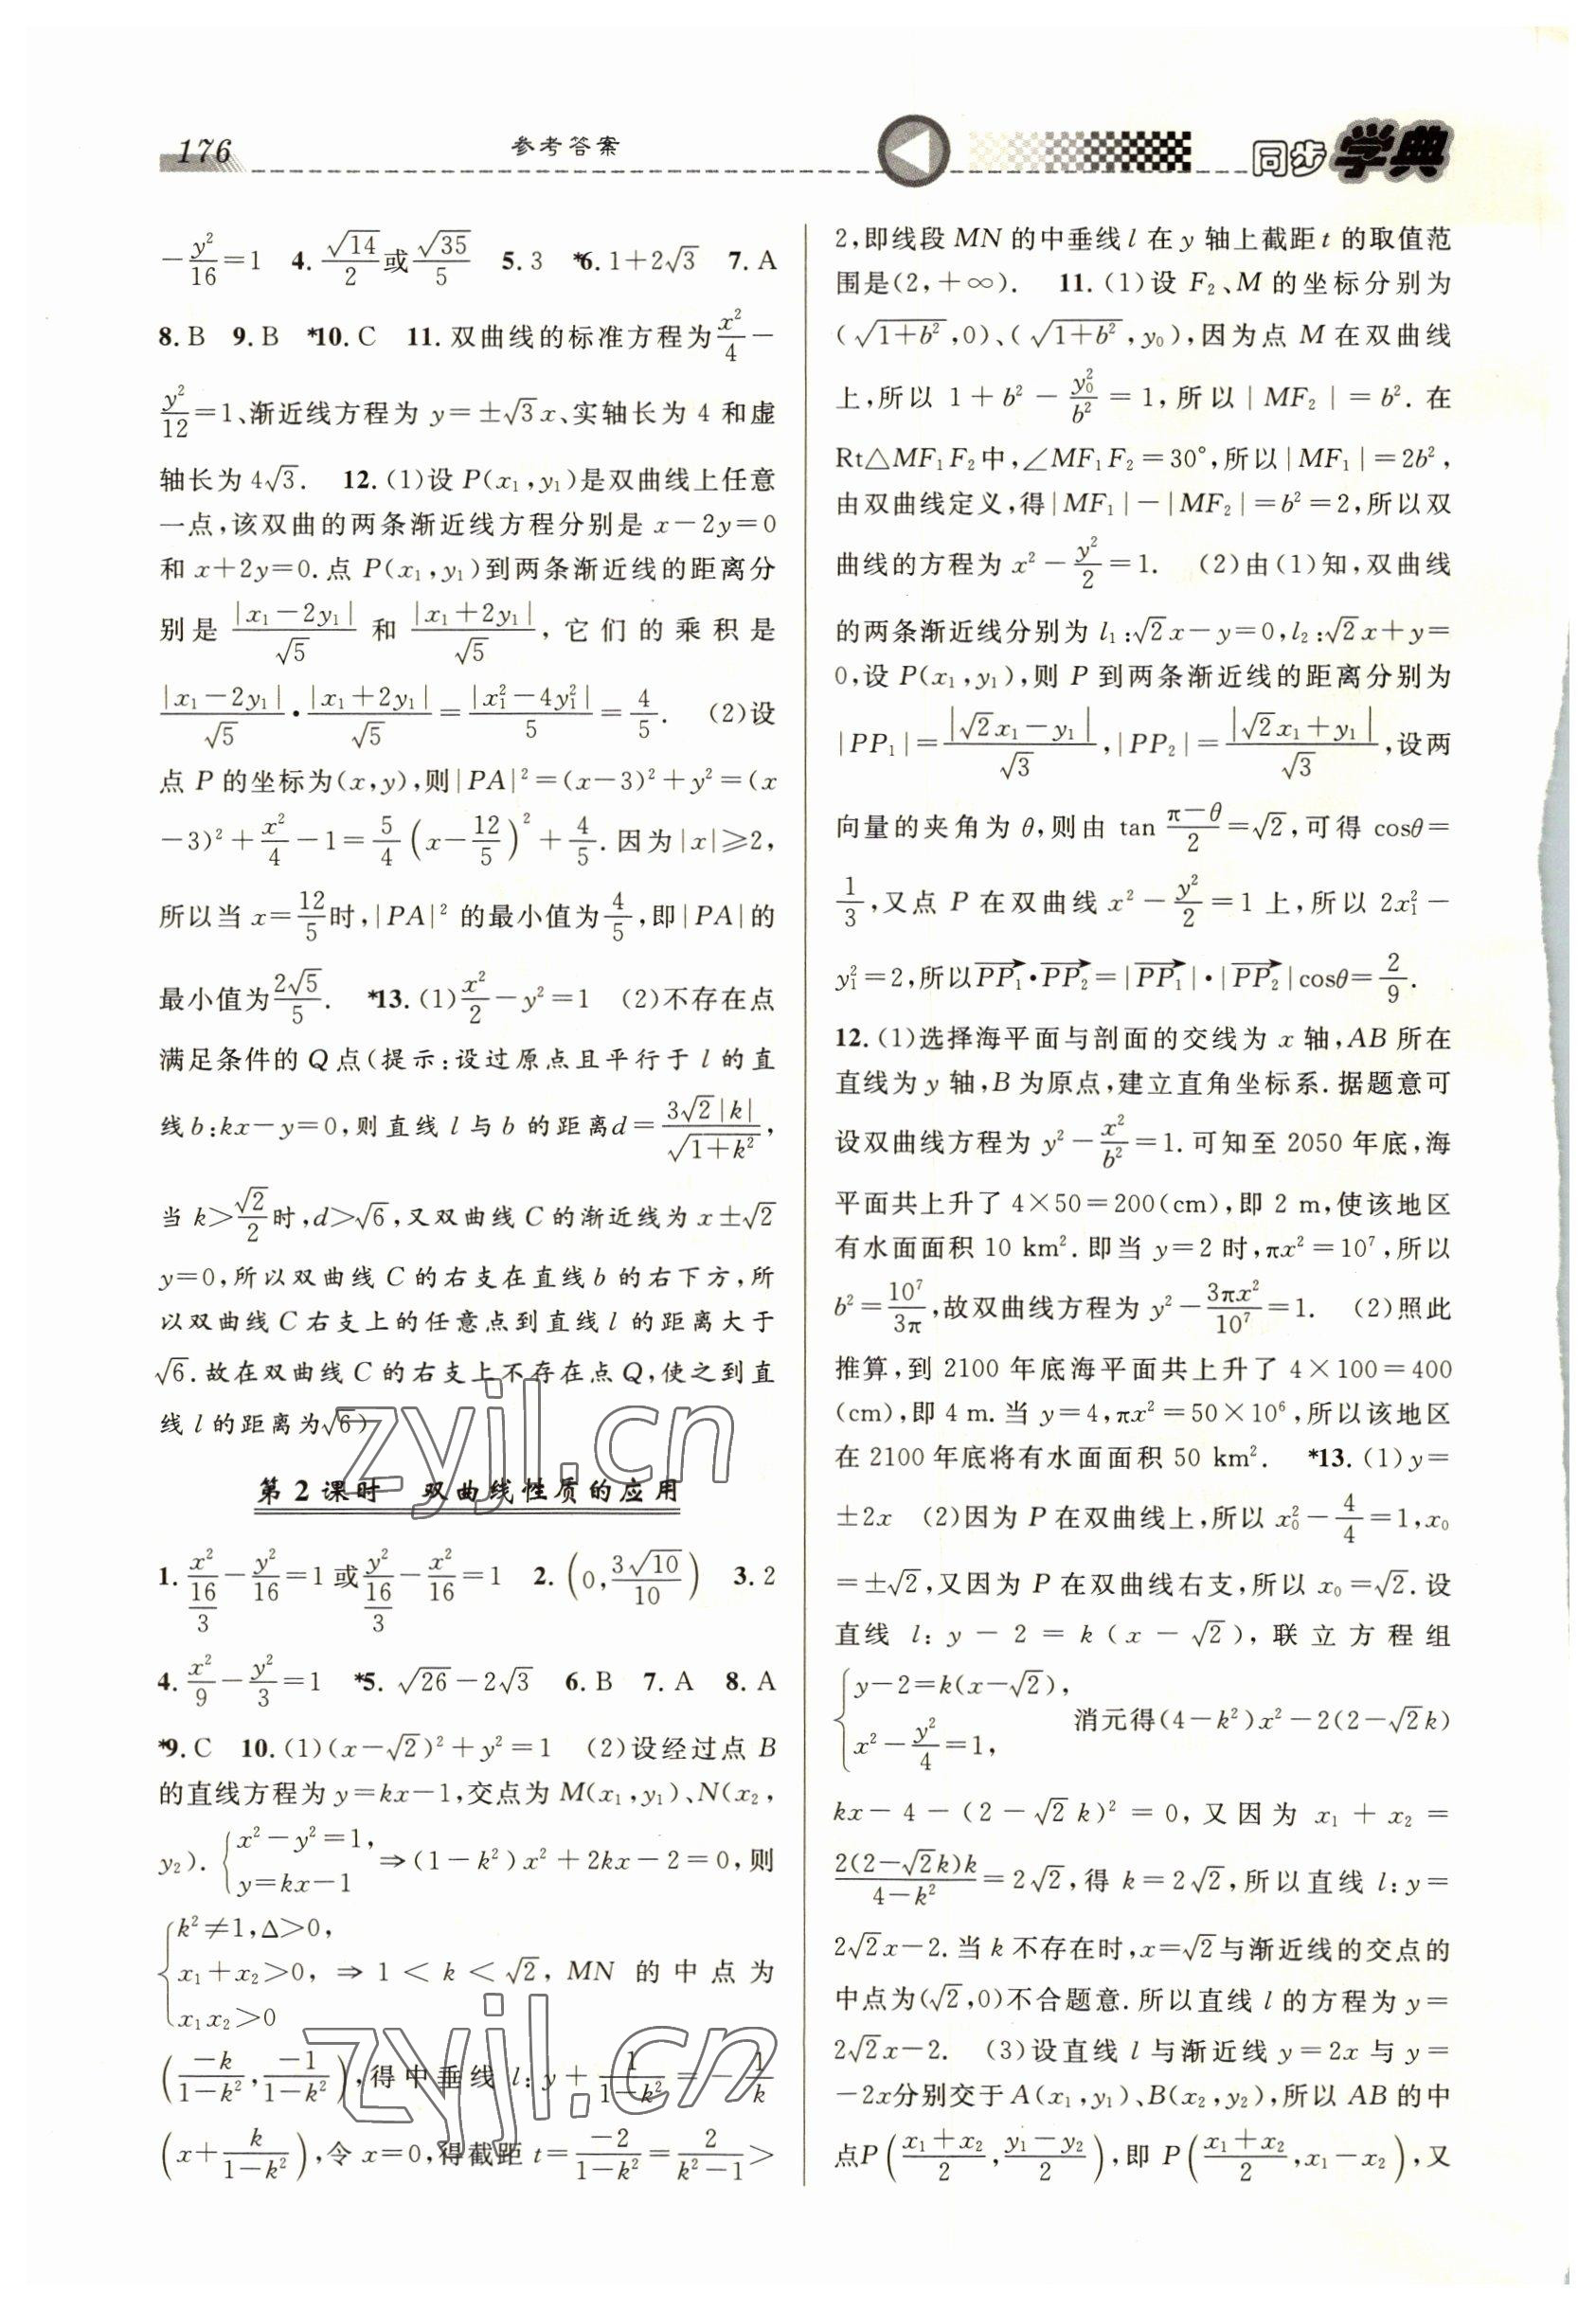 176
参考答案
同步学典
−y²/16=1 4.√14/2或√35/5 5.3 *6.1+2√3 7.A
8.B 9.B *10.C 11.双曲线的标准方程为x²/4−
y²/12=1、渐近线方程为 y=±√3x、实轴长为 4 和虚
轴长为 4√3. 12.(1)设 P(x₁,y₁)是双曲线上任意
一点,该双曲的两条渐近线方程分别是 x−2y=0
和 x+2y=0.点 P(x₁,y₁)到两条渐近线的距离分
别是 |x₁−2y₁|/√5 和 |x₁+2y₁|/√5,它们的乘积是
|x₁−2y₁|/√5·|x₁+2y₁|/√5=|x₁²−4y₁²|/5=4/5. (2)设
点 P 的坐标为(x,y),则|PA|²=(x−3)²+y²=(x
−3)²+x²/4−1=5/4(x−12/5)²+4/5.因为|x|≥2,
所以当 x=12/5时,|PA|² 的最小值为4/5,即|PA|的
最小值为2√5/5. *13.(1)x²/2−y²=1 (2)不存在点
满足条件的 Q 点(提示:设过原点且平行于 l 的直
线 b:kx−y=0,则直线 l 与 b 的距离d=3√2|k|/√(1+k²),
当 k>√2/2时,d>√6,又双曲线 C 的渐近线为 x±√2
y=0,所以双曲线 C 的右支在直线 b 的右下方,所
以双曲线 C 右支上的任意点到直线 l 的距离大于
√6.故在双曲线 C 的右支上不存在点 Q,使之到直
线 l 的距离为√6)
第 2 课时 双曲线性质的应用
1.x²/(16/3)−y²/16=1 或y²/(16/3)−x²/16=1 2.(0,3√10/10) 3.2
4.x²/9−y²/3=1 *5.√26−2√3 6.B 7.A 8.A
*9.C 10.(1)(x−√2)²+y²=1 (2)设经过点 B
的直线方程为 y=kx−1,交点为 M(x₁,y₁)、N(x₂,
y₂).{x²−y²=1, y=kx−1 ⇒(1−k²)x²+2kx−2=0,则
{k²≠1,Δ>0, x₁+x₂>0, x₁x₂>0 ⇒ 1<k<√2,MN 的中点为
(−k/(1−k²),−1/(1−k²)),得中垂线 l:y+1/(1−k²)=−1/k
(x+k/(1−k²)),令 x=0,得截距 t=−2/(1−k²)=2/(k²−1)>
2,即线段 MN 的中垂线 l 在 y 轴上截距 t 的取值范
围是(2,+∞). 11.(1)设 F₂、M 的坐标分别为
(√(1+b²),0)、(√(1+b²),y₀),因为点 M 在双曲线
上,所以 1+b²−y₀²/b²=1,所以|MF₂|=b².在
Rt△MF₁F₂中,∠MF₁F₂=30°,所以|MF₁|=2b²,
由双曲线定义,得|MF₁|−|MF₂|=b²=2,所以双
曲线的方程为 x²−y²/2=1. (2)由(1)知,双曲线
的两条渐近线分别为 l₁:√2x−y=0,l₂:√2x+y=
0,设 P(x₁,y₁),则 P 到两条渐近线的距离分别为
|PP₁|=|√2x₁−y₁|/√3,|PP₂|=|√2x₁+y₁|/√3,设两
向量的夹角为 θ,则由 tan (π−θ)/2=√2,可得 cosθ=
1/3,又点 P 在双曲线 x²−y²/2=1 上,所以 2x₁²−
y₁²=2,所以PP₁→·PP₂→=|PP₁→|·|PP₂→|cosθ=2/9.
12.(1)选择海平面与剖面的交线为 x 轴,AB 所在
直线为 y 轴,B 为原点,建立直角坐标系.据题意可
设双曲线方程为 y²−x²/b²=1.可知至 2050 年底,海
平面共上升了 4×50=200(cm),即 2 m,使该地区
有水面面积 10 km².即当 y=2 时,πx²=10⁷,所以
b²=10⁷/3π,故双曲线方程为 y²−3πx²/10⁷=1. (2)照此
推算,到 2100 年底海平面共上升了 4×100=400
(cm),即 4 m.当 y=4,πx²=50×10⁶,所以该地区
在 2100 年底将有水面面积 50 km². *13.(1)y=
±2x (2)因为 P 在双曲线上,所以 x₀²−4/4=1,x₀
=±√2,又因为 P 在双曲线右支,所以 x₀=√2.设
直线 l:y−2=k(x−√2),联立方程组
{y−2=k(x−√2), x²−y²/4=1, 消元得(4−k²)x²−2(2−√2k)
kx−4−(2−√2k)²=0,又因为 x₁+x₂=
2(2−√2k)k/(4−k²)=2√2,得 k=2√2,所以直线 l:y=
2√2x−2.当 k 不存在时,x=√2与渐近线的交点的
中点为(√2,0)不合题意.所以直线 l 的方程为 y=
2√2x−2. (3)设直线 l 与渐近线 y=2x 与 y=
−2x分别交于 A(x₁,y₁)、B(x₂,y₂),所以 AB 的中
点P((x₁+x₂)/2,(y₁−y₂)/2),即 P((x₁+x₂)/2,x₁−x₂),又
zyjl.cn
zyjl.cn